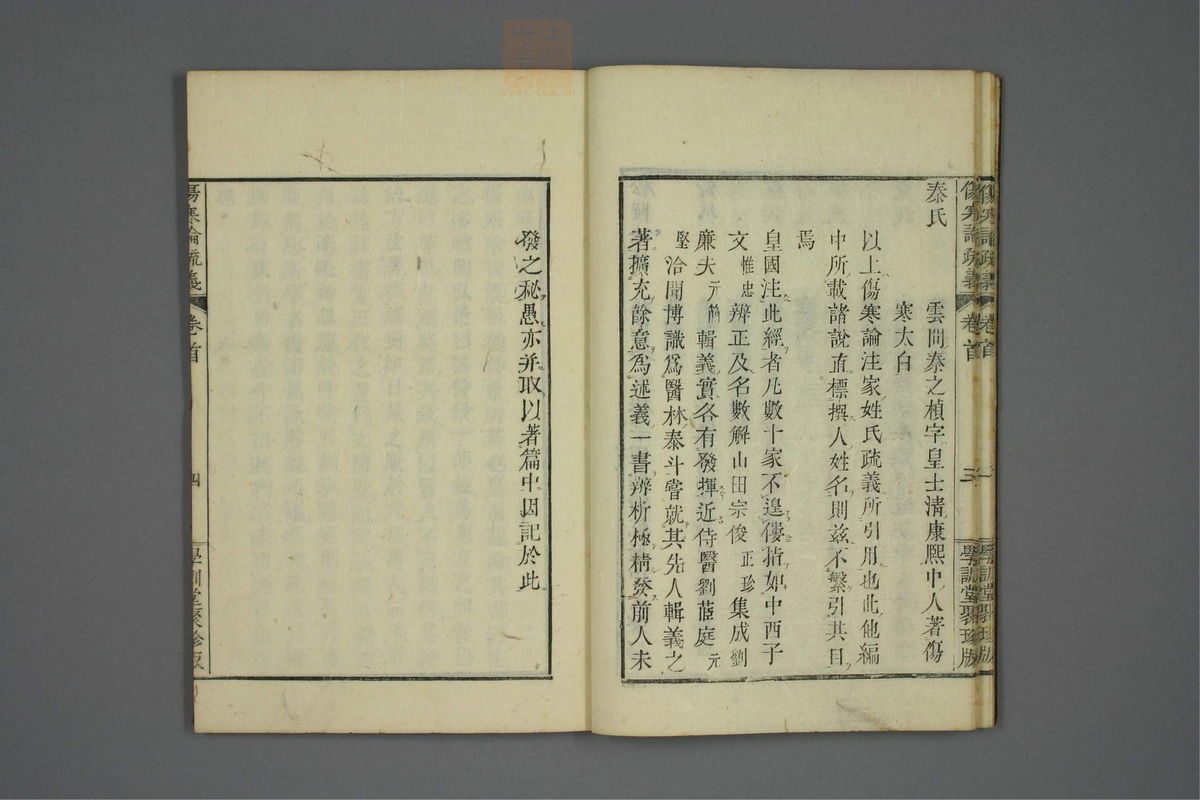 傷寒論疏義 卷首 三 學訓堂聚珍版
秦氏 雲間秦之楨字皇士淸康熙中人著傷
寒大白
以上傷寒論注家姓氏疏義所引用也此他編
中所載諸說直標撰人姓名則兹不繁引其目
焉
皇國注此經者凡數十家不遑僂指如中西子
文惟忠辨正及名數解山田宗俊正珍集成劉
廉夫元簡輯義實各有發揮近侍醫劉茝庭元
堅洽聞博識爲醫林泰斗嘗就其先人輯義之
著擴充餘意爲述義一書辨析極精發前人未
發之秘愚亦并取以著篇中因記於此
傷寒論疏義 卷首 四 學訓堂聚珍版